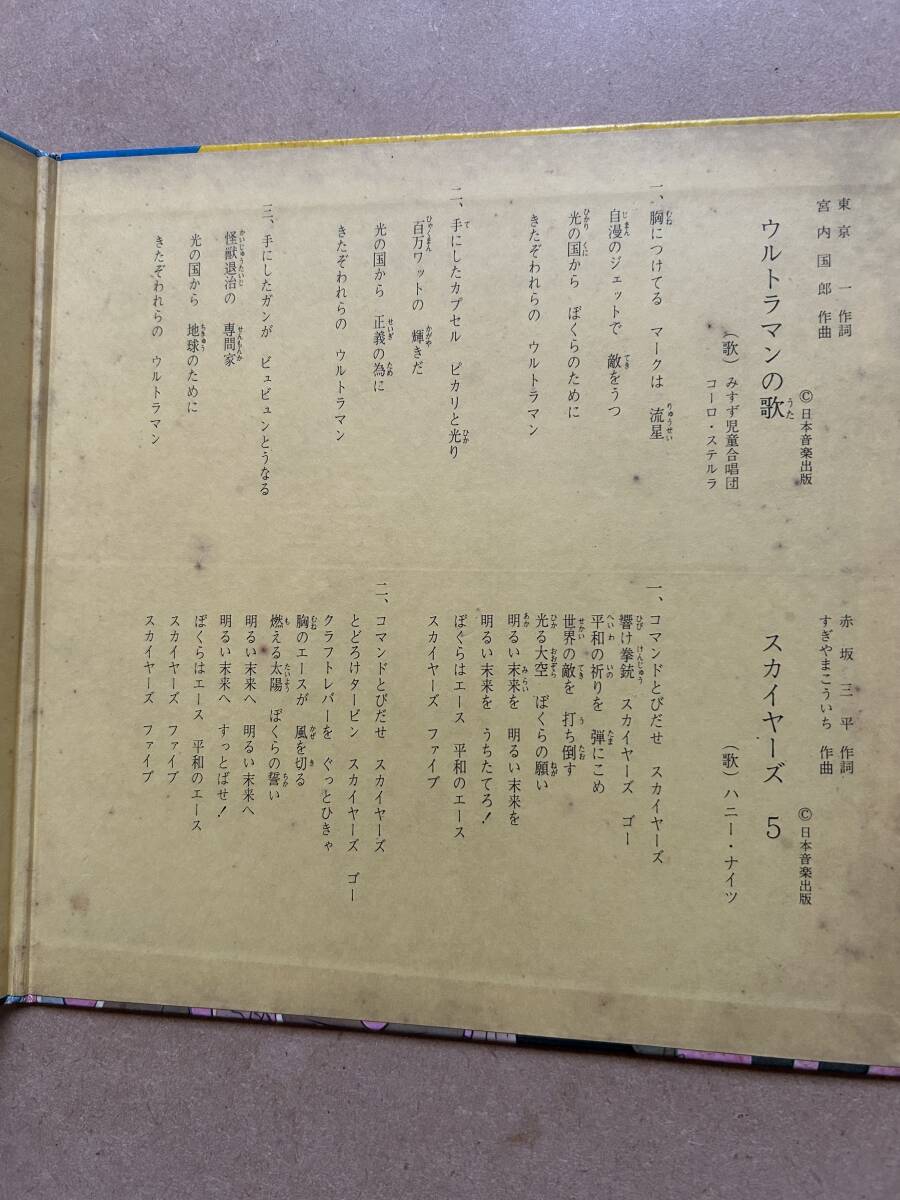 東京一 作詞
宮内国郎 作曲
ウルトラマンの歌
© 日本音楽出版
(歌) みすず児童合唱団
コーロ・ステルラ
一、胸につけてる マークは 流星
自漫のジェットで 敵をうつ
光の国から ぼくらのために
きたぞわれらの ウルトラマン
二、手にしたカプセル ピカリと光り
百万ワットの 輝きだ
光の国から 正義の為に
きたぞわれらの ウルトラマン
三、手にしたガンが ビュビュンとうなる
怪獣退治の 専問家
光の国から 地球のために
きたぞわれらの ウルトラマン
赤坂三平 作詞
すぎやまこういち 作曲
スカイヤーズ 5
© 日本音楽出版
(歌) ハニー・ナイツ
一、コマンドとびだせ スカイヤーズ
響け拳銃 スカイヤーズ ゴー
平和の祈りを 弾にこめ
世界の敵を 打ち倒す
光る大空 ぼくらの願い
明るい末来を 明るい末来を
明るい末来を うちたてろ!
ぼくらはエース 平和のエース
スカイヤーズ ファイブ
二、コマンドとびだせ スカイヤーズ
とどろけタービン スカイヤーズ ゴー
クラフトレバーを ぐっとひきゃ
胸のエースが 風を切る
燃える太陽 ぼくらの誓い
明るい末来へ 明るい末来へ
明るい末来へ すっとばせ!
ぼくらはエース 平和のエース
スカイヤーズ ファイブ
スカイヤーズ ファイブ